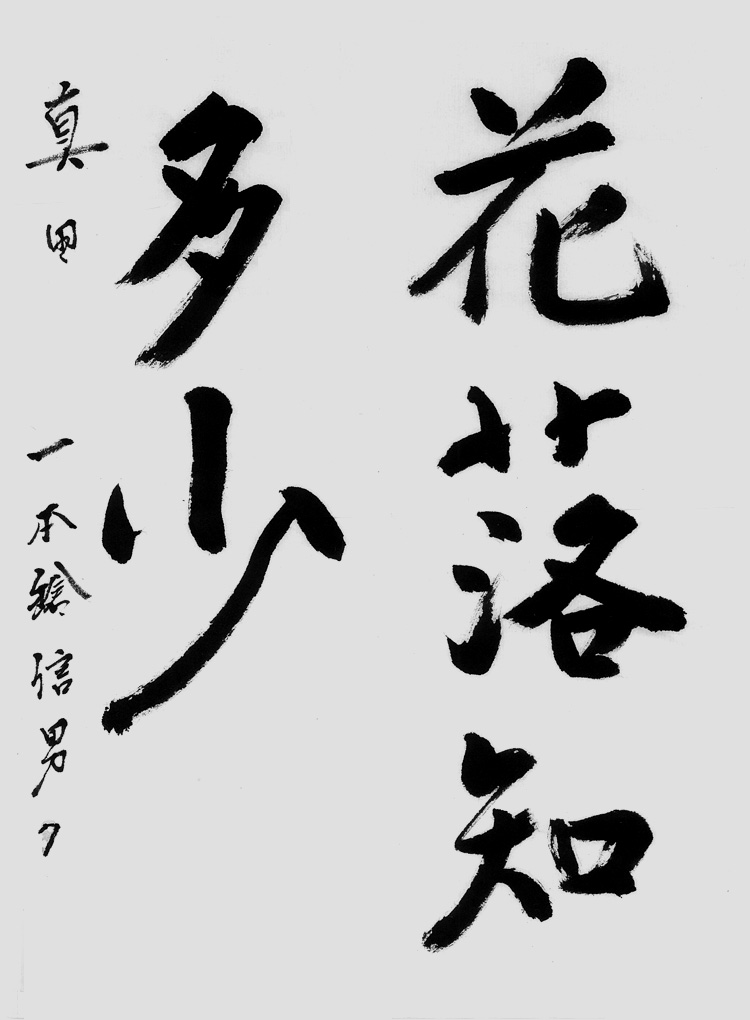 花落知
多少
真田 一本鎗 信男